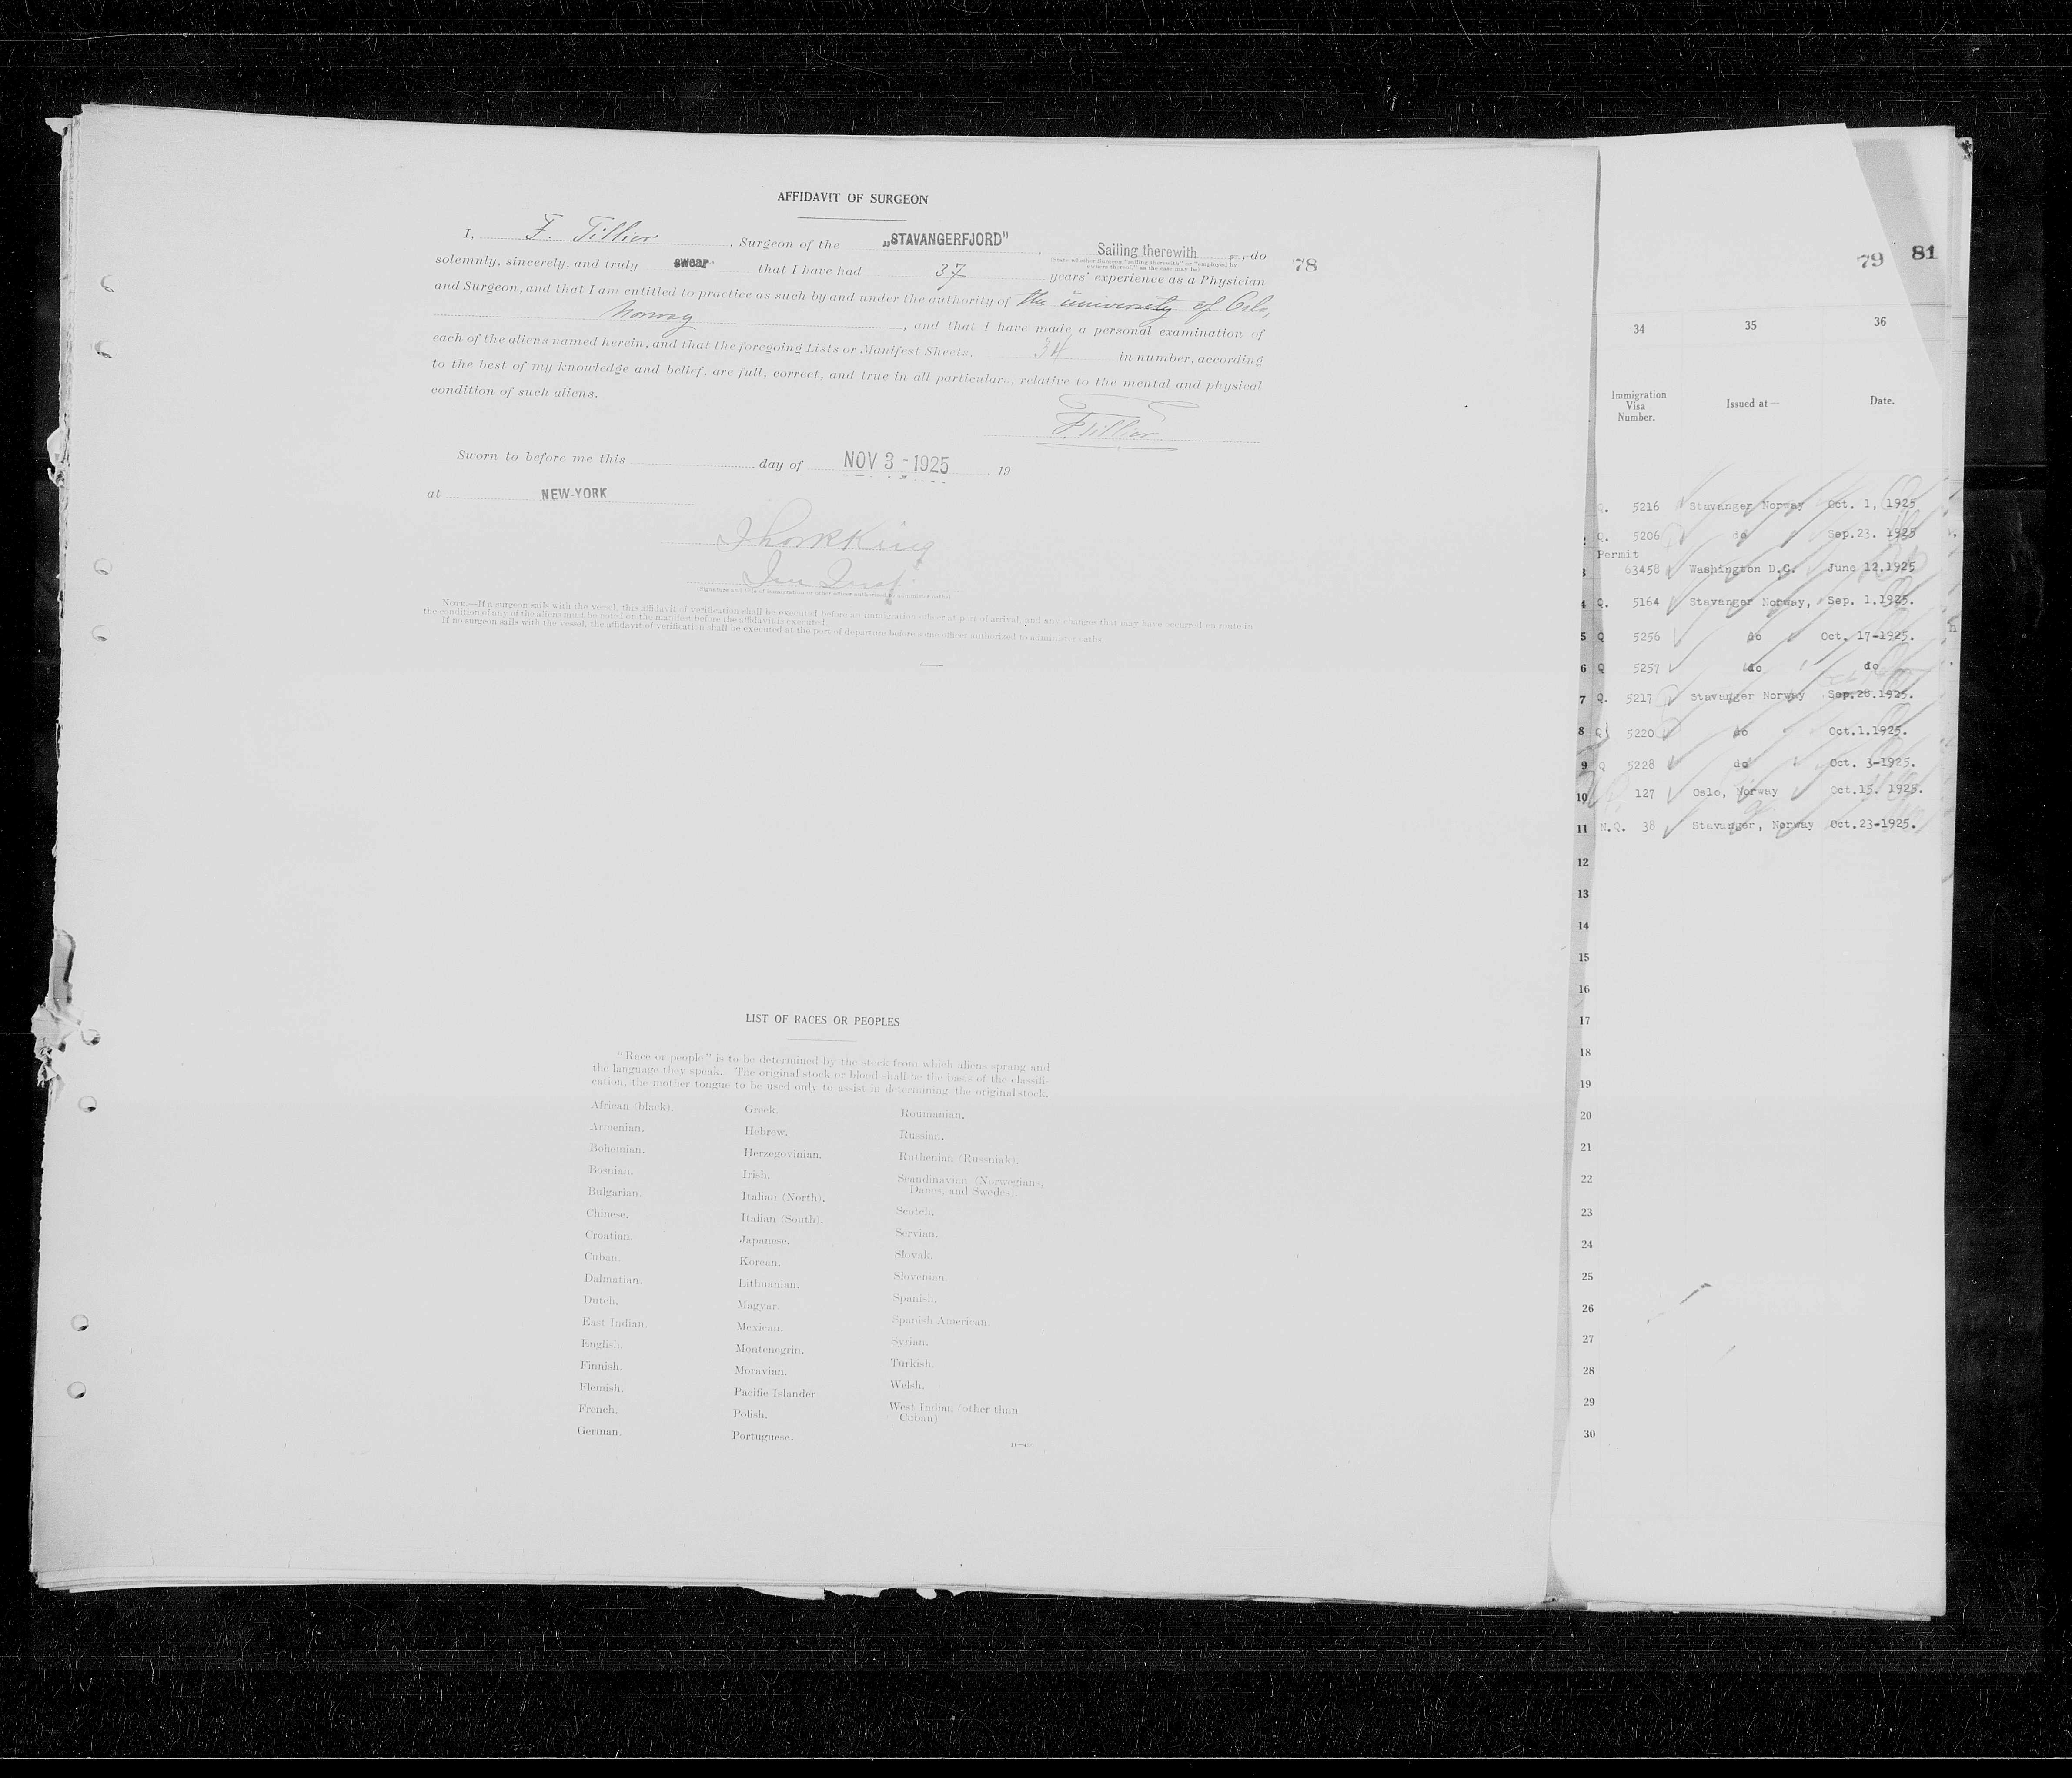 AFFIDAVIT OF SURGEON
I, F. Tillier , Surgeon of the „STAVANGERFJORD" , Sailing therewith , do
(State whether Surgeon "sailing therewith" or "employed by
owners thereof," as the case may be)
solemnly, sincerely, and truly swear that I have had 37 years' experience as a Physician
and Surgeon, and that I am entitled to practice as such by and under the authority of the university of Oslo,
Norway , and that I have made a personal examination of
each of the aliens named herein, and that the foregoing Lists or Manifest Sheets, 34 in number, according
to the best of my knowledge and belief, are full, correct, and true in all particulars, relative to the mental and physical
condition of such aliens.
F. Tillier
Sworn to before me this day of NOV 3 - 1925 , 19
at NEW-YORK
(Signature and title of immigration or other officer authorized to administer oaths)
NOTE.—If a surgeon sails with the vessel, this affidavit of verification shall be executed before an immigration officer at port of arrival, and any changes that may have occurred en route in
the condition of any of the aliens must be noted on the manifest before the affidavit is executed.
If no surgeon sails with the vessel, the affidavit of verification shall be executed at the port of departure before some officer authorized to administer oaths.
LIST OF RACES OR PEOPLES
"Race or people" is to be determined by the stock from which aliens sprang and
the language they speak. The original stock or blood shall be the basis of the classifi-
cation, the mother tongue to be used only to assist in determining the original stock.
African (black).
Armenian.
Bohemian.
Bosnian.
Bulgarian.
Chinese.
Croatian.
Cuban.
Dalmatian.
Dutch.
East Indian.
English.
Finnish.
Flemish.
French.
German.
Greek.
Hebrew.
Herzegovinian.
Irish.
Italian (North).
Italian (South).
Japanese.
Korean.
Lithuanian.
Magyar.
Mexican.
Montenegrin.
Moravian.
Pacific Islander
Polish.
Portuguese.
Roumanian.
Russian.
Ruthenian (Russniak).
Scandinavian (Norwegians,
Danes, and Swedes).
Scotch.
Servian.
Slovak.
Slovenian.
Spanish.
Spanish American.
Syrian.
Turkish.
Welsh.
West Indian (other than
Cuban)
78
79 81
34 35 36
Immigration
Visa
Number.
Issued at—
Date.
Q. 5216 Stavanger Norway Oct. 1, 1925
Q. 5206 do Sep.23. 1925
Permit
3 63458 Washington D.C. June 12.1925
4 Q. 5164 Stavanger Norway, Sep. 1.1925.
5 Q 5256 do Oct. 17-1925.
6 Q 5257 do do
7 Q. 5217 Stavanger Norway Sep.28.1925.
8 Q 5220 do Oct.1.1925.
9 Q 5228 do Oct. 3-1925.
10 127 Oslo, Norway Oct.15. 1925.
11 N.Q. 38 Stavanger, Norway Oct.23-1925.
12
13
14
15
16
17
18
19
20
21
22
23
24
25
26
27
28
29
30